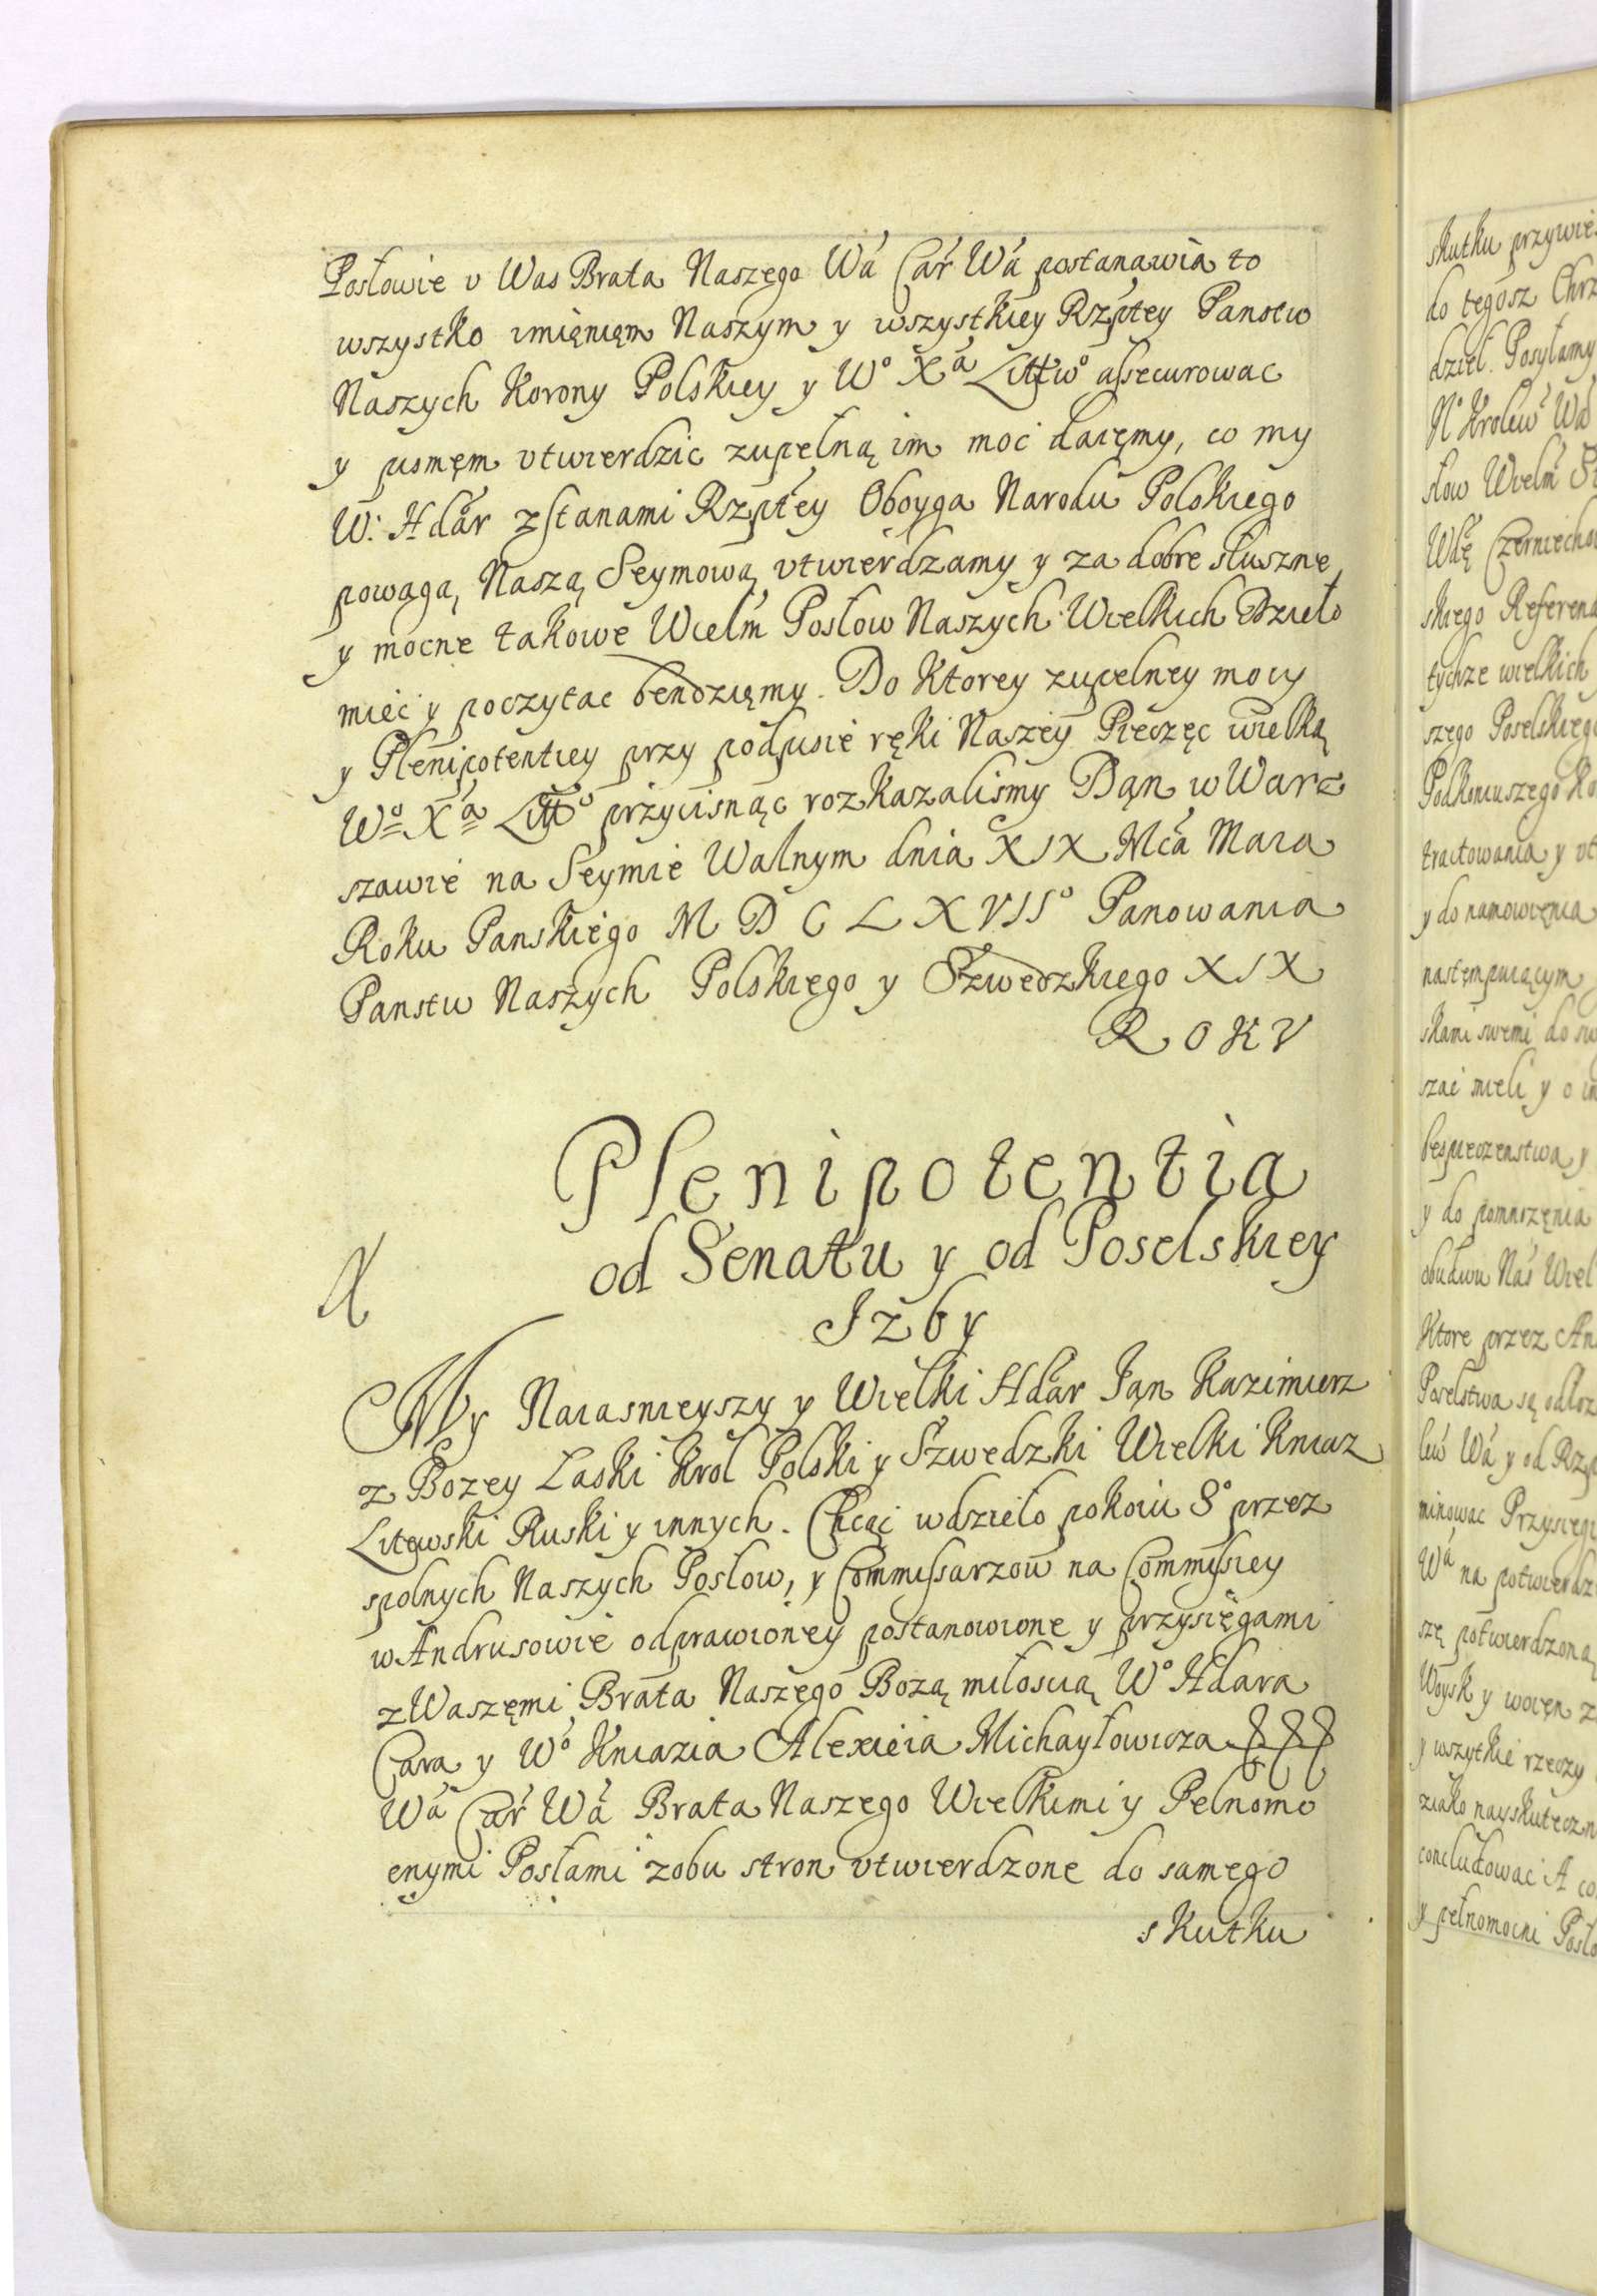 Posłowie v Was Brata Naszego Wá Cár Wá postanawia to
wszystko imięnięm Naszym y wszystkiey Rzptey Panstw
Naszych Korony Polskiey y W° Xá Litt̃w° assecurowac
y pismęm vtwierdzic zupełną im moc daięmy, co my
W: Hdar z stanami Rzptey Oboyga Narodu Polskiego
powagą Naszą Seymową vtwierdzamy y za dobre słuszne
y mocne takowe Wielm Posłow Naszych Wielkich Dzieło
mieć y poczytac bendzięmy. Do Ktorey zupelney mocy
y Plenipotentiey przy podpisie ręki Naszey Pieczęc wielką
W° Xá Litt° przycisnąc rozkazalismy Dąn w War=
szawie na Seymie Walnym dnia XIX Mcá Maia
Roku Panskiego M D C L X VII° Panowania
Panstw Naszych Polskiego y Szwedzkiego XIX
R O K V
Plenipotentia
od Senatu y od Poselskiey
Izby
My Naiasnieyszy y Wielki Hdar Ian Kazimierz
z Bozey Laski Krol Polski y Szwedzki Wielki Kniaz
Litewski Ruski y innych. Chcąc w dzieło pokoiu S° przez
spolnych Naszych Posłow, y Commissarzow na Commissiey
w Andrusowie odprawioney postanowione y przysięgami
z Waszęmi Brata Naszego Bozą miłoscią W° Hdara
Cara y W° Kniazia Alexieia Michayłowicza
Wá Cár Wá Brata Naszego Wielkimi y Pelnomo
cnymi Posłami z obu stron vtwierdzone do samego
skutku
skutku przywie
do tegosz Chrz
dzieł. Posyłamy
N° Krolew Wá
słow Wielm
Wdę Czerniecho
skiego Referen
tychze wielkich
szego Poselskieg
Podkoniuszego Ko
tractowania y vt
y do namowięnia
nastempuiącym
skami swemi do sw
szac mieli y o in
bespieczenstwa y
y do pomnozęnia
obudwu Nas Wiel
Ktore przez An
Poselstwa są odłoz
lew Wá y od Rzp
minowac Przysieg
Wá na potwierdz
szę potwierdzoną
Woysk y woięn z
y wszytkie rzeczy
ziako nayskuteczn
concludowac A co
y pełnomocni Posło